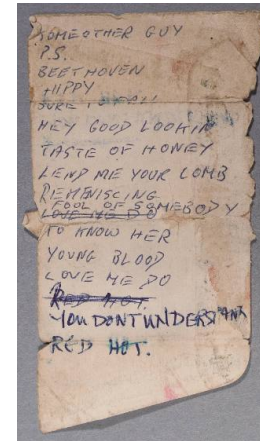 SOME OTHER GUY
P.S.
BEETHOVEN
HIPPY
SURE TO FALL
HEY GOOD LOOKIN
TASTE OF HONEY
LEND ME YOUR COMB
REMENISCING
FOOL OF SOMEBODY
LOVE ME DO
TO KNOW HER
YOUNG BLOOD
LOVE ME DO
RED HOT.
YOU DONT UNDERSTAND
RED HOT.